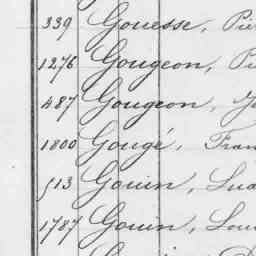 339 Gouesse,
1276 Gougeon,
487 Gougeon,
1800 Gougé,
513 Gouin,
1787 Gouin,